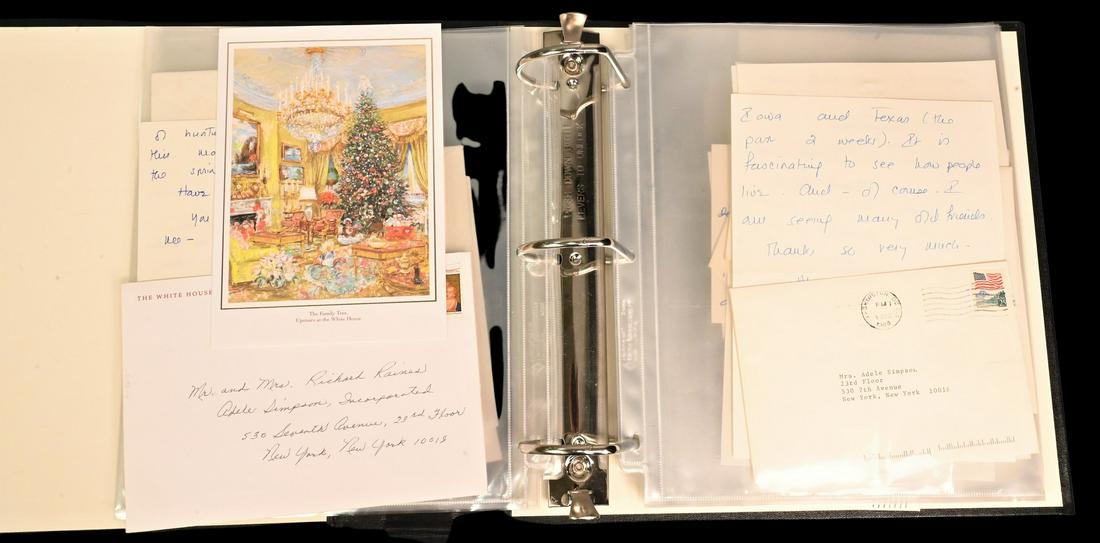 of
this
the
Have
You
me —
The Family Tree,
Upstairs at the White House
THE WHITE HOUSE
Mr. and Mrs. Richard Raines
Adele Simpson, Incorporated
530 Seventh Avenue, 23rd Floor
New York, New York 10018
LEVERS TO UNLOCK
Iowa and Texas (the
past 2 weeks). It is
fascinating to see how people
live. And — of course. I
am seeing many old friends.
Thanks so very much —
Mrs. Adele Simpson
23rd Floor
530 7th Avenue
New York, New York 10018